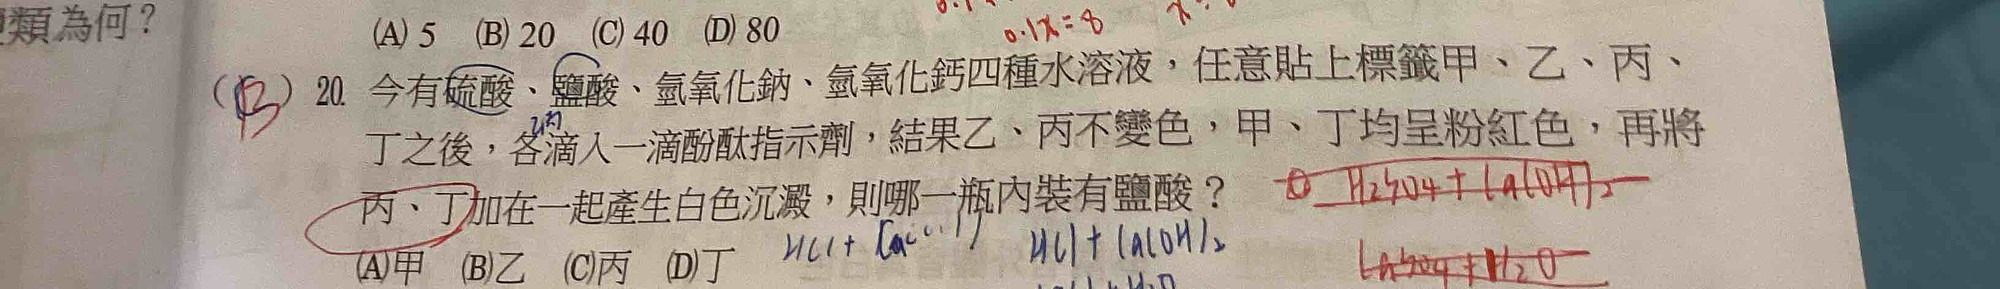 類為何？
(A) 5 (B) 20 (C) 40 (D) 80
0.1x=8
(B) 20. 今有硫酸、鹽酸、氫氧化鈉、氫氧化鈣四種水溶液，任意貼上標籤甲、乙、丙、
乙丙
丁之後，各滴入一滴酚酞指示劑，結果乙、丙不變色，甲、丁均呈粉紅色，再將
丙、丁加在一起產生白色沉澱，則哪一瓶內裝有鹽酸？
H2SO4+Ca(OH)2
(A)甲 (B)乙 (C)丙 (D)丁
HCl+ HCl+Ca(OH)2
CaSO4+H2O